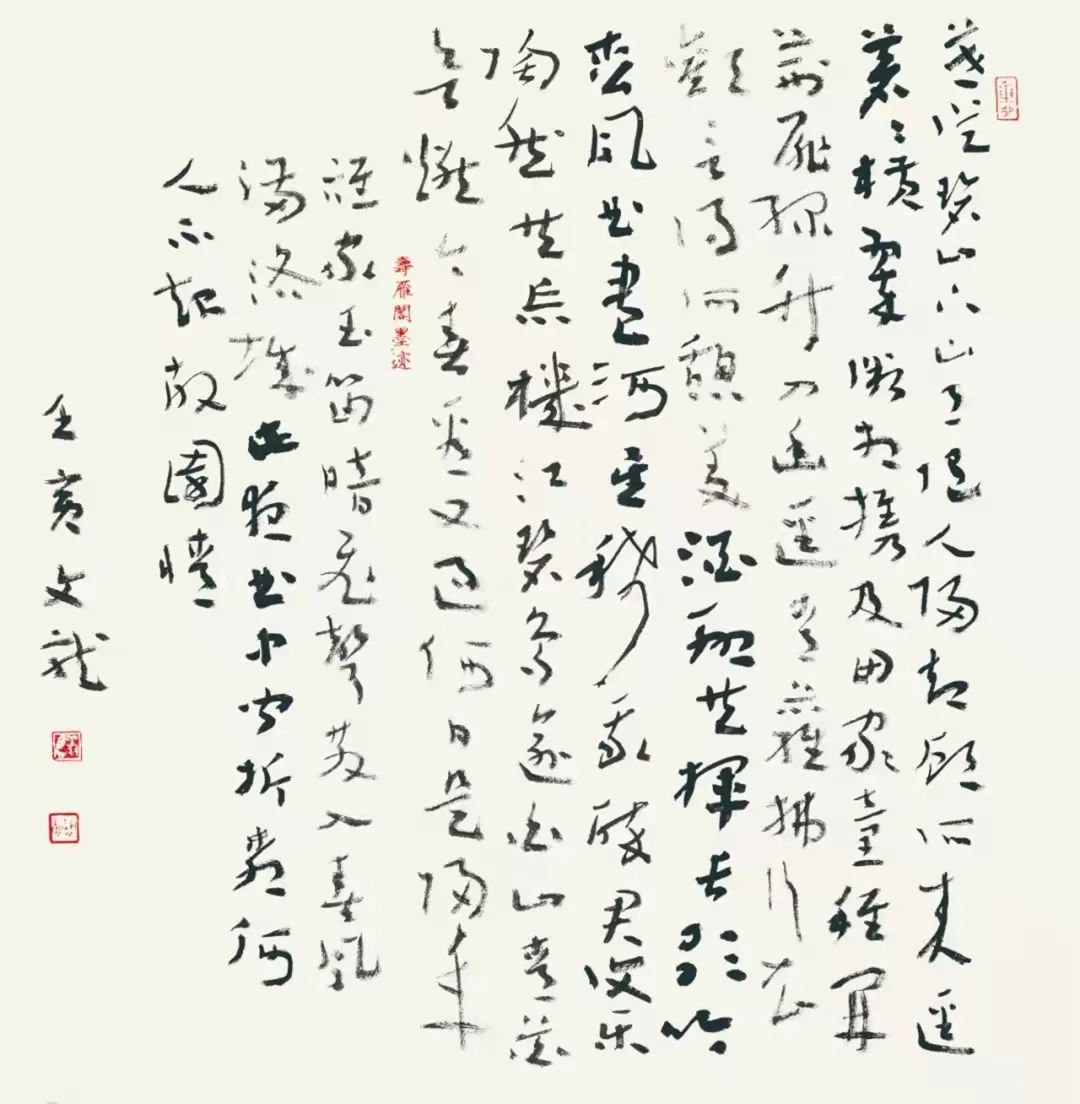 暮從碧山下山月隨人歸却顧所來逕
蒼〻橫翠微相攜及田家童稚開
荊扉綠竹入幽逕青蘿拂行衣
歡言得所憩美酒聊共揮長歌吟
松風曲盡河星稀我醉君復樂
陶然共忘機江碧鳥逾白山青花
欲燃今春看又過何日是歸年
誰家玉笛暗飛聲散入春風
滿洛城此夜曲中聞折柳何
人不起故園情
壬寅文龍
壽雁閣墨迹